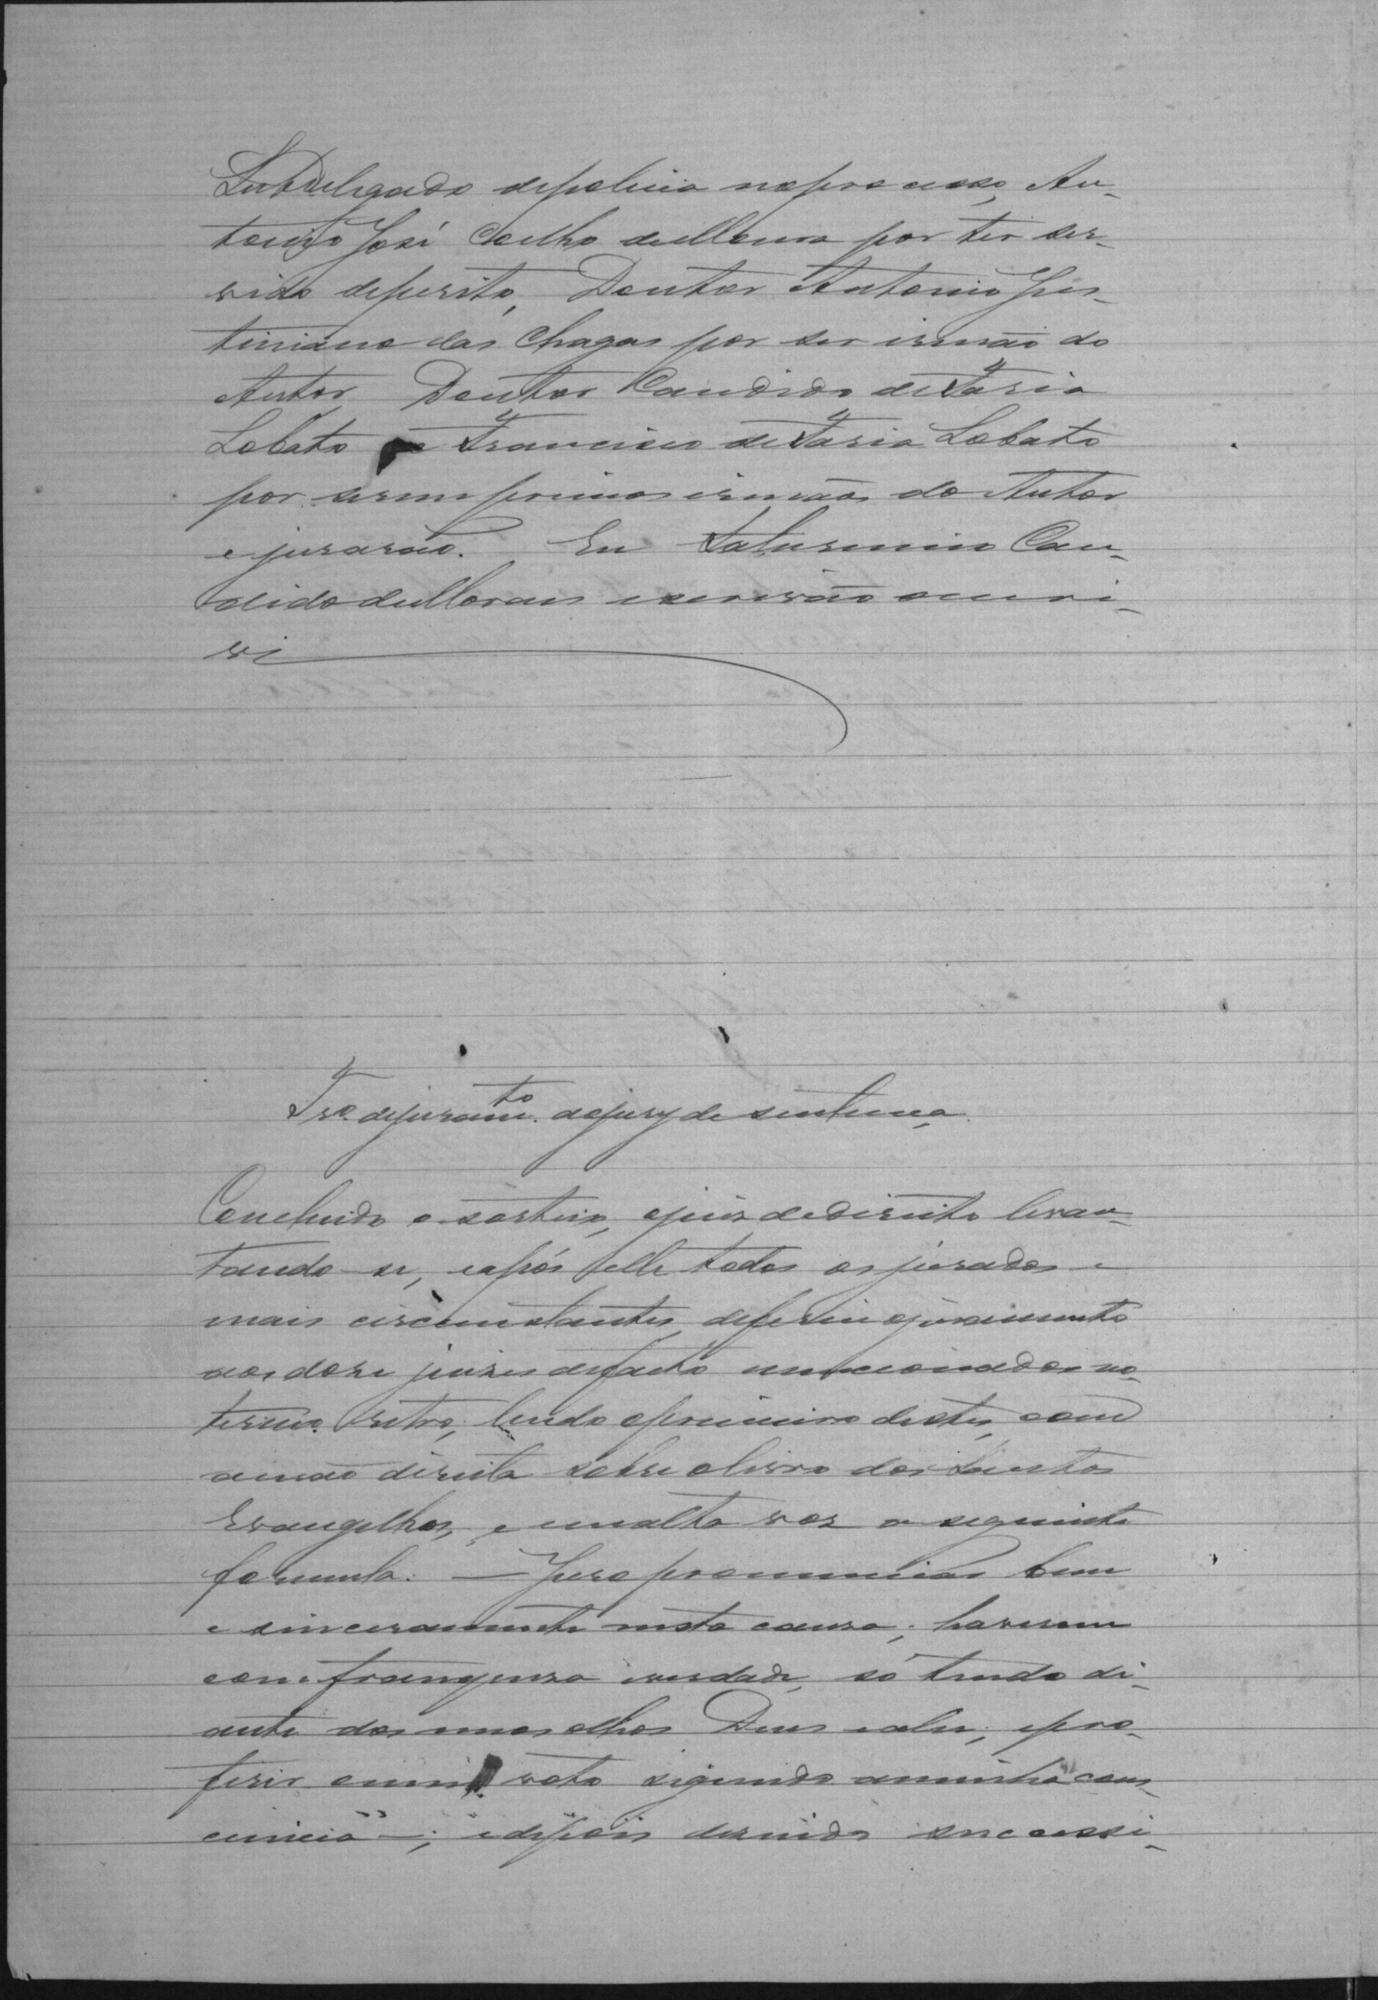 Subdelegado de policia no processo, An-
tonio José Coelho de Moura por ter ser-
vido de perito, Doutor Antonio Jus-
tiniano das Chagas por ser irmão do
Autor, Doutor Candido de Faria
Lobato e Francisco de Faria Lobato
por serem primos irmãos do Autor
e jurarão. Eu Saturnino Can-
dido de Moraes escrivão o escri-
vi
Tr.o de juram.to do jury de sentença.
Concluido o sorteio, o juiz de direito levan-
tando-se, e após elle todos os jurados e
mais circumstantes, deferiu o juramento
aos doze juizes de facto mencionados no
termo retro, lendo o primeiro destes, com
a mão direita sobre o livro dos Santos
Evangelhos, e em alta voz a seguinte
formula: — Juro pronunciar bem
e sinceramente nesta causa; haver-me
com franqueza e verdade, só tendo di-
ante dos meus olhos Deus e a lei; e pro-
ferir o meu voto segundo a minha cons-
ciencia —; e depois disendo successi-